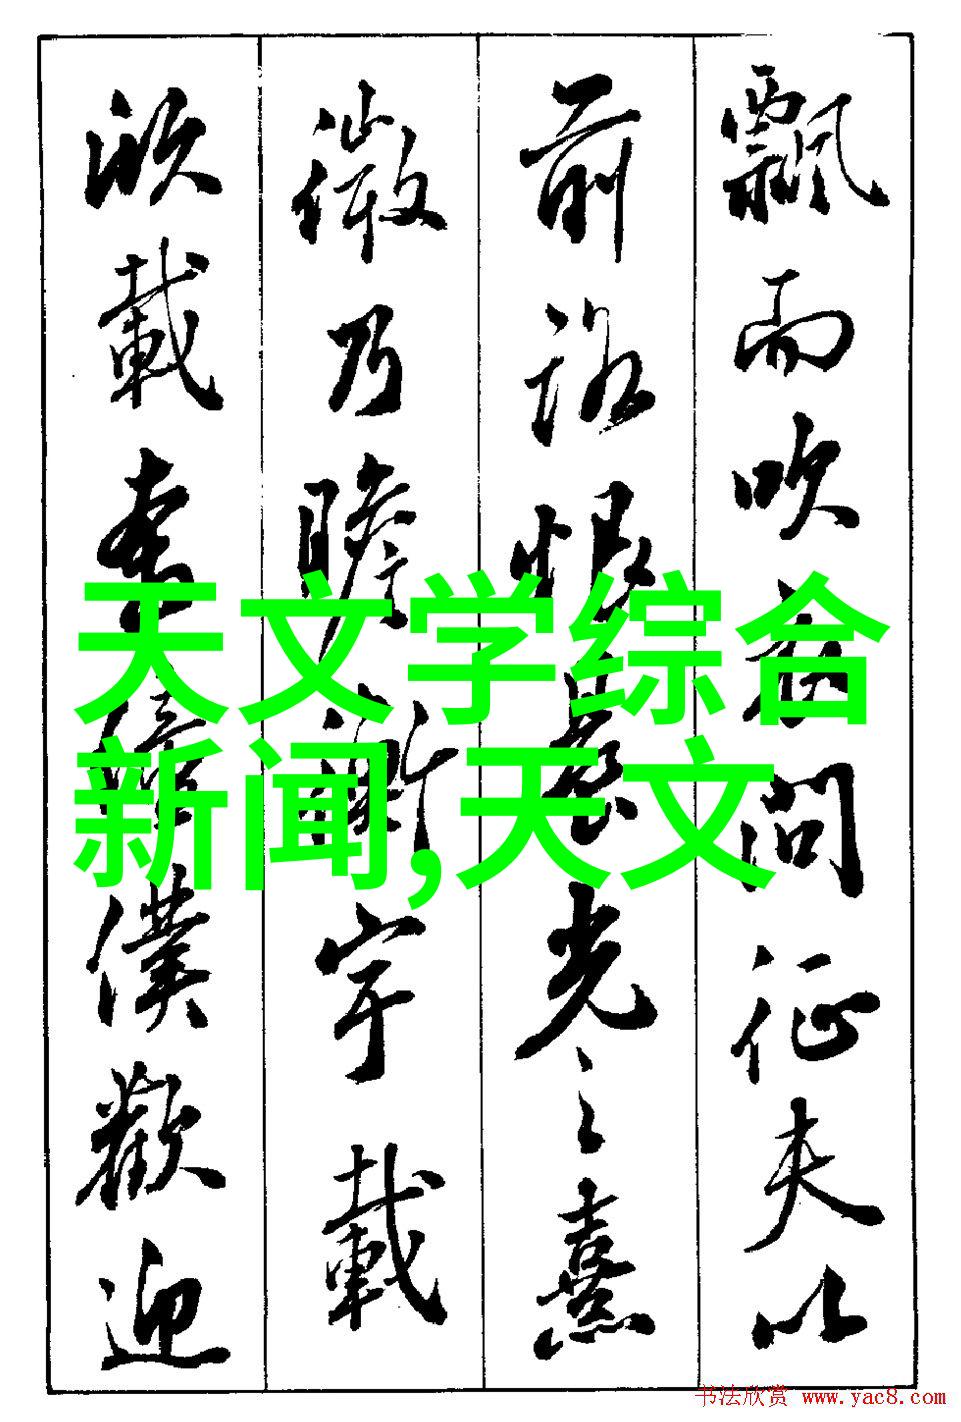 飄而吹衣問征夫以
前路恨晨光之熹
微乃瞻衡宇載
欣載奔僮僕歡迎
天文学综合
新闻,天文
书法欣赏 www.yac8.com